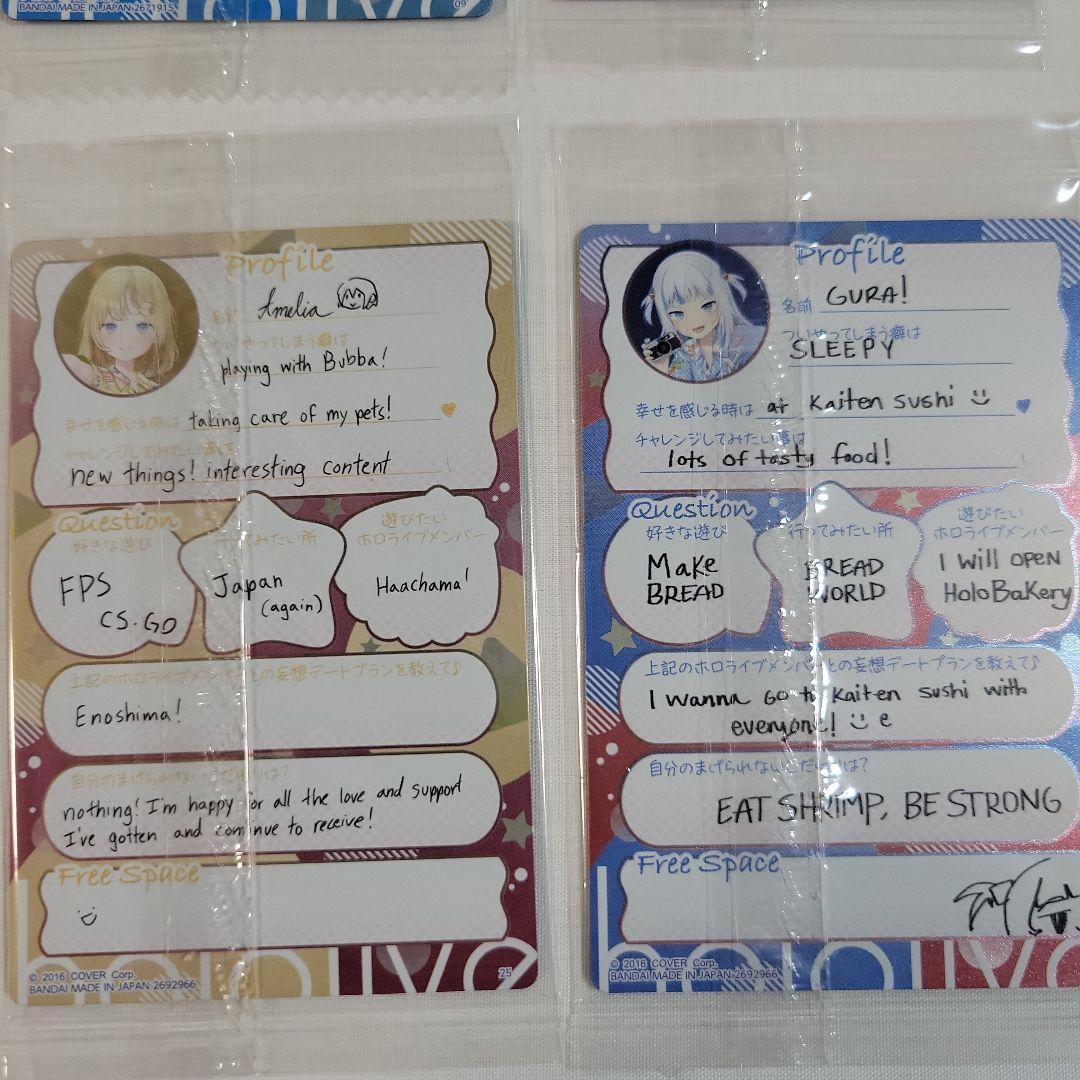 BANDAI MADE IN JAPAN 2671915
09
Profile
名前 Amelia
ついやってしまう癖は
playing with Bubba!
幸せを感じる時は taking care of my pets!
チャレンジしてみたい事は
new things! interesting content
Question
好きな遊び
FPS
CS:GO
行ってみたい所
Japan
(again)
遊びたい
ホロライブメンバー
Haachama!
上記のホロライブメンバーとの妄想デートプランを教えて♪
Enoshima!
自分のまげられないこだわりは?
nothing! I'm happy for all the love and support
I've gotten and continue to receive!
Free Space
hololive
© 2016 COVER Corp.
BANDAI MADE IN JAPAN 2692966
25
Profile
名前 GURA!
ついやってしまう癖は
SLEEPY
幸せを感じる時は at Kaiten sushi
チャレンジしてみたい事は
lots of tasty food!
Question
好きな遊び
Make
BREAD
行ってみたい所
BREAD
WORLD
遊びたい
ホロライブメンバー
I will open
HoloBakery
上記のホロライブメンバーとの妄想デートプランを教えて♪
I wanna go to Kaiten sushi with
everyone! e
自分のまげられないこだわりは?
EAT SHRIMP, BE STRONG
Free Space
hololive
© 2016 COVER Corp.
BANDAI MADE IN JAPAN 2692966